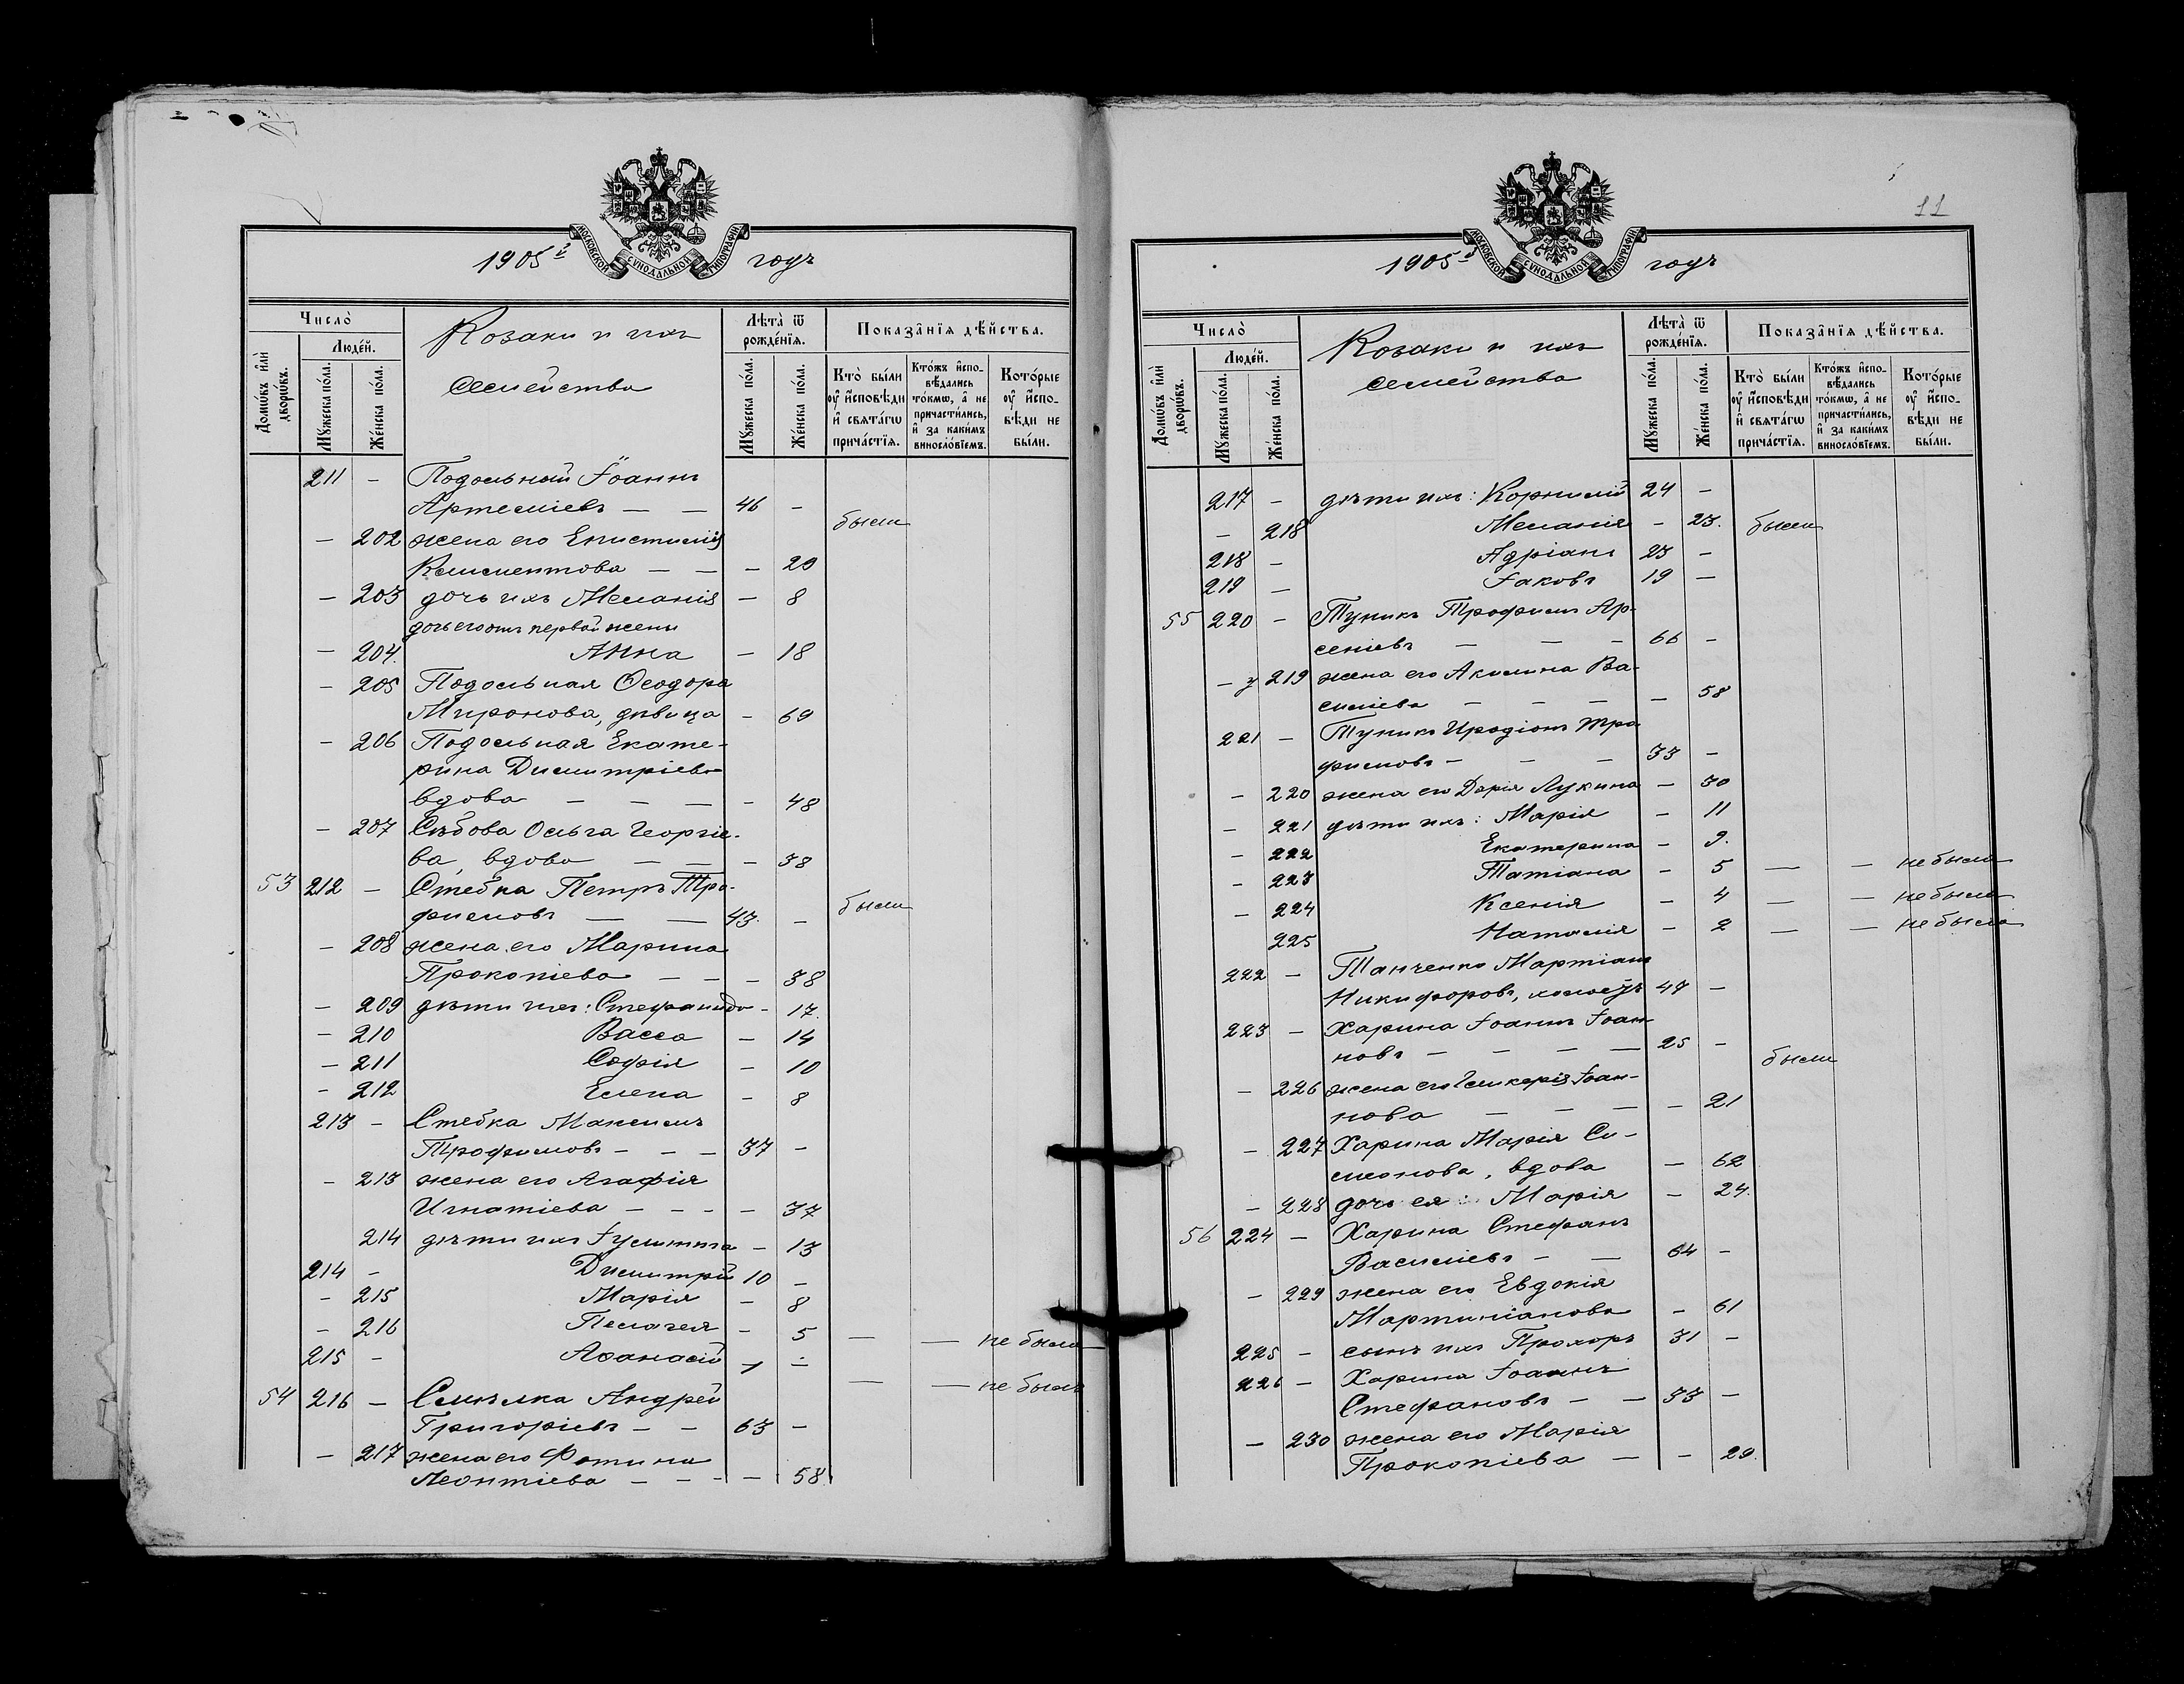 МОСКОВСКОЙ СѴНОДАЛЬНОЙ ТИПОГРАФІИ
1905й годъ
Число̀
Домѡ́въ и҆лѝ дворѡ́въ.
Люде́й.
Мꙋ́жеска по́ла.
Же́нска по́ла.
Козаки и ихъ
семейства
Лѣта̀ ѿ рожде́нїѧ.
Мꙋ́жеска по́ла.
Же́нска по́ла.
Показа̂нїѧ дѣ́йства.
Кто̀ бы́ли ᲂу҆ и҆́сповѣди и҆ свѧта́гѡ прича́стїѧ.
Кто́жъ и҆спо-вѣ́дались то́кмѡ, а҆ не причасти́лись, и҆ за каки́мъ винослѡ́вїемъ.
Кото́рые ᲂу҆ и҆́спо-вѣди не бы́ли.
211 - Подольный Іоаннъ
Артеміевъ — — 46 -
были
- 202 жена его Епистимія
Климентова — — - 29
- 203 дочь ихъ Меланія - 8
дочь его отъ первой жены
- 204. Анна - 18
- 205 Подольная Ѳеодора
Миронова, дѣвица - 69
- 206 Подольная Екате-
рина Димитріева
вдова — — — - 48
- 207 Ольга Георгіе-
ва, вдова — — - 38
53 212 - Стебка Петръ Тро-
фимовъ — — 43. - были
- 208 жена его Марина
Прокопіева — — - 38
- 209 дѣти ихъ: Стефанида - 17.
- 210 Васса - 14
- 211 Софія - 10
- 212 Елена - 8
213 - Стебка Максимъ
Трофимовъ - - - 37 -
- 213 жена его Агафія
Игнатіева - - - - 37
214 дѣти ихъ Іулитта - 13
214 - Димитрій 10 -
- 215 Марія - 8
- 216 Пелагея - 5 — — не была
215 - Аѳанасій 1 - — — не былъ
54 216 - Андрей
Григоріевъ - - 63 -
- 217 жена его Фотина
Леонтіева - - - - 58.
11
МОСКОВСКОЙ СѴНОДАЛЬНОЙ ТИПОГРАФІИ
1905й годъ
Число̀
Домѡ́въ и҆лѝ дворѡ́въ.
Люде́й.
Мꙋ́жеска по́ла.
Же́нска по́ла.
Козаки и ихъ
семейства
Лѣта̀ ѿ рожде́нїѧ.
Мꙋ́жеска по́ла.
Же́нска по́ла.
Показа̂нїѧ дѣ́йства.
Кто̀ бы́ли ᲂу҆ и҆́сповѣди и҆ свѧта́гѡ прича́стїѧ.
Кто́жъ и҆спо-вѣ́дались то́кмѡ, а҆ не причасти́лись, и҆ за каки́мъ винослѡ́вїемъ.
Кото́рые ᲂу҆ и҆́спо-вѣди не бы́ли.
217 - дѣти ихъ: Корнилій 24 -
- 218 Меланія - 23. были
218 - Адріанъ 23 -
219 - Іаковъ 19 -
55 220 - Тупикъ Трофимъ Ар-
сеніевъ — — - 66 -
- 219 жена его Акилина Ва-
силіева — — - - 58
221 - Тупикъ Иродіонъ Тро
фимовъ - - - 33 -
- 220 жена его Дарія Лукина - 30
- 221 дѣти ихъ: Марія - 11
- 222 Екатерина - 9.
- 223 Татіана - 5 — — не была
- 224 Ксенія - 4 — — не была
225 Наталія - 2 — — не была
222 - Танченко Мартіанъ
Никифоровъ, холостъ 47 -
223 - Харина Іоаннъ Іоан
новъ - - - — 25 -
были
- 226 жена его Гликерія Іоан-
нова — - - - 21
- 227 Харина Марія Си-
меонова, вдова - 62
- 228 дочь ея: Марія - 24.
56 224 - Харина Стефанъ
Василіевъ - — 64 -
- 229 жена его Евдокія
Мартиніанова - 61
225 - сынъ ихъ Прохоръ 31 -
226 - Харина Іоаннъ
Стефановъ - - 33 -
- 230 жена его Марія
Прокопіева — - - 29.